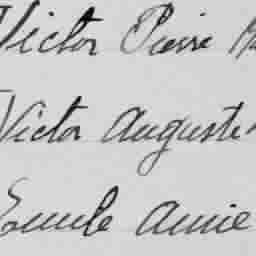 Victor Pierre
Victor Auguste
Emile Aimé